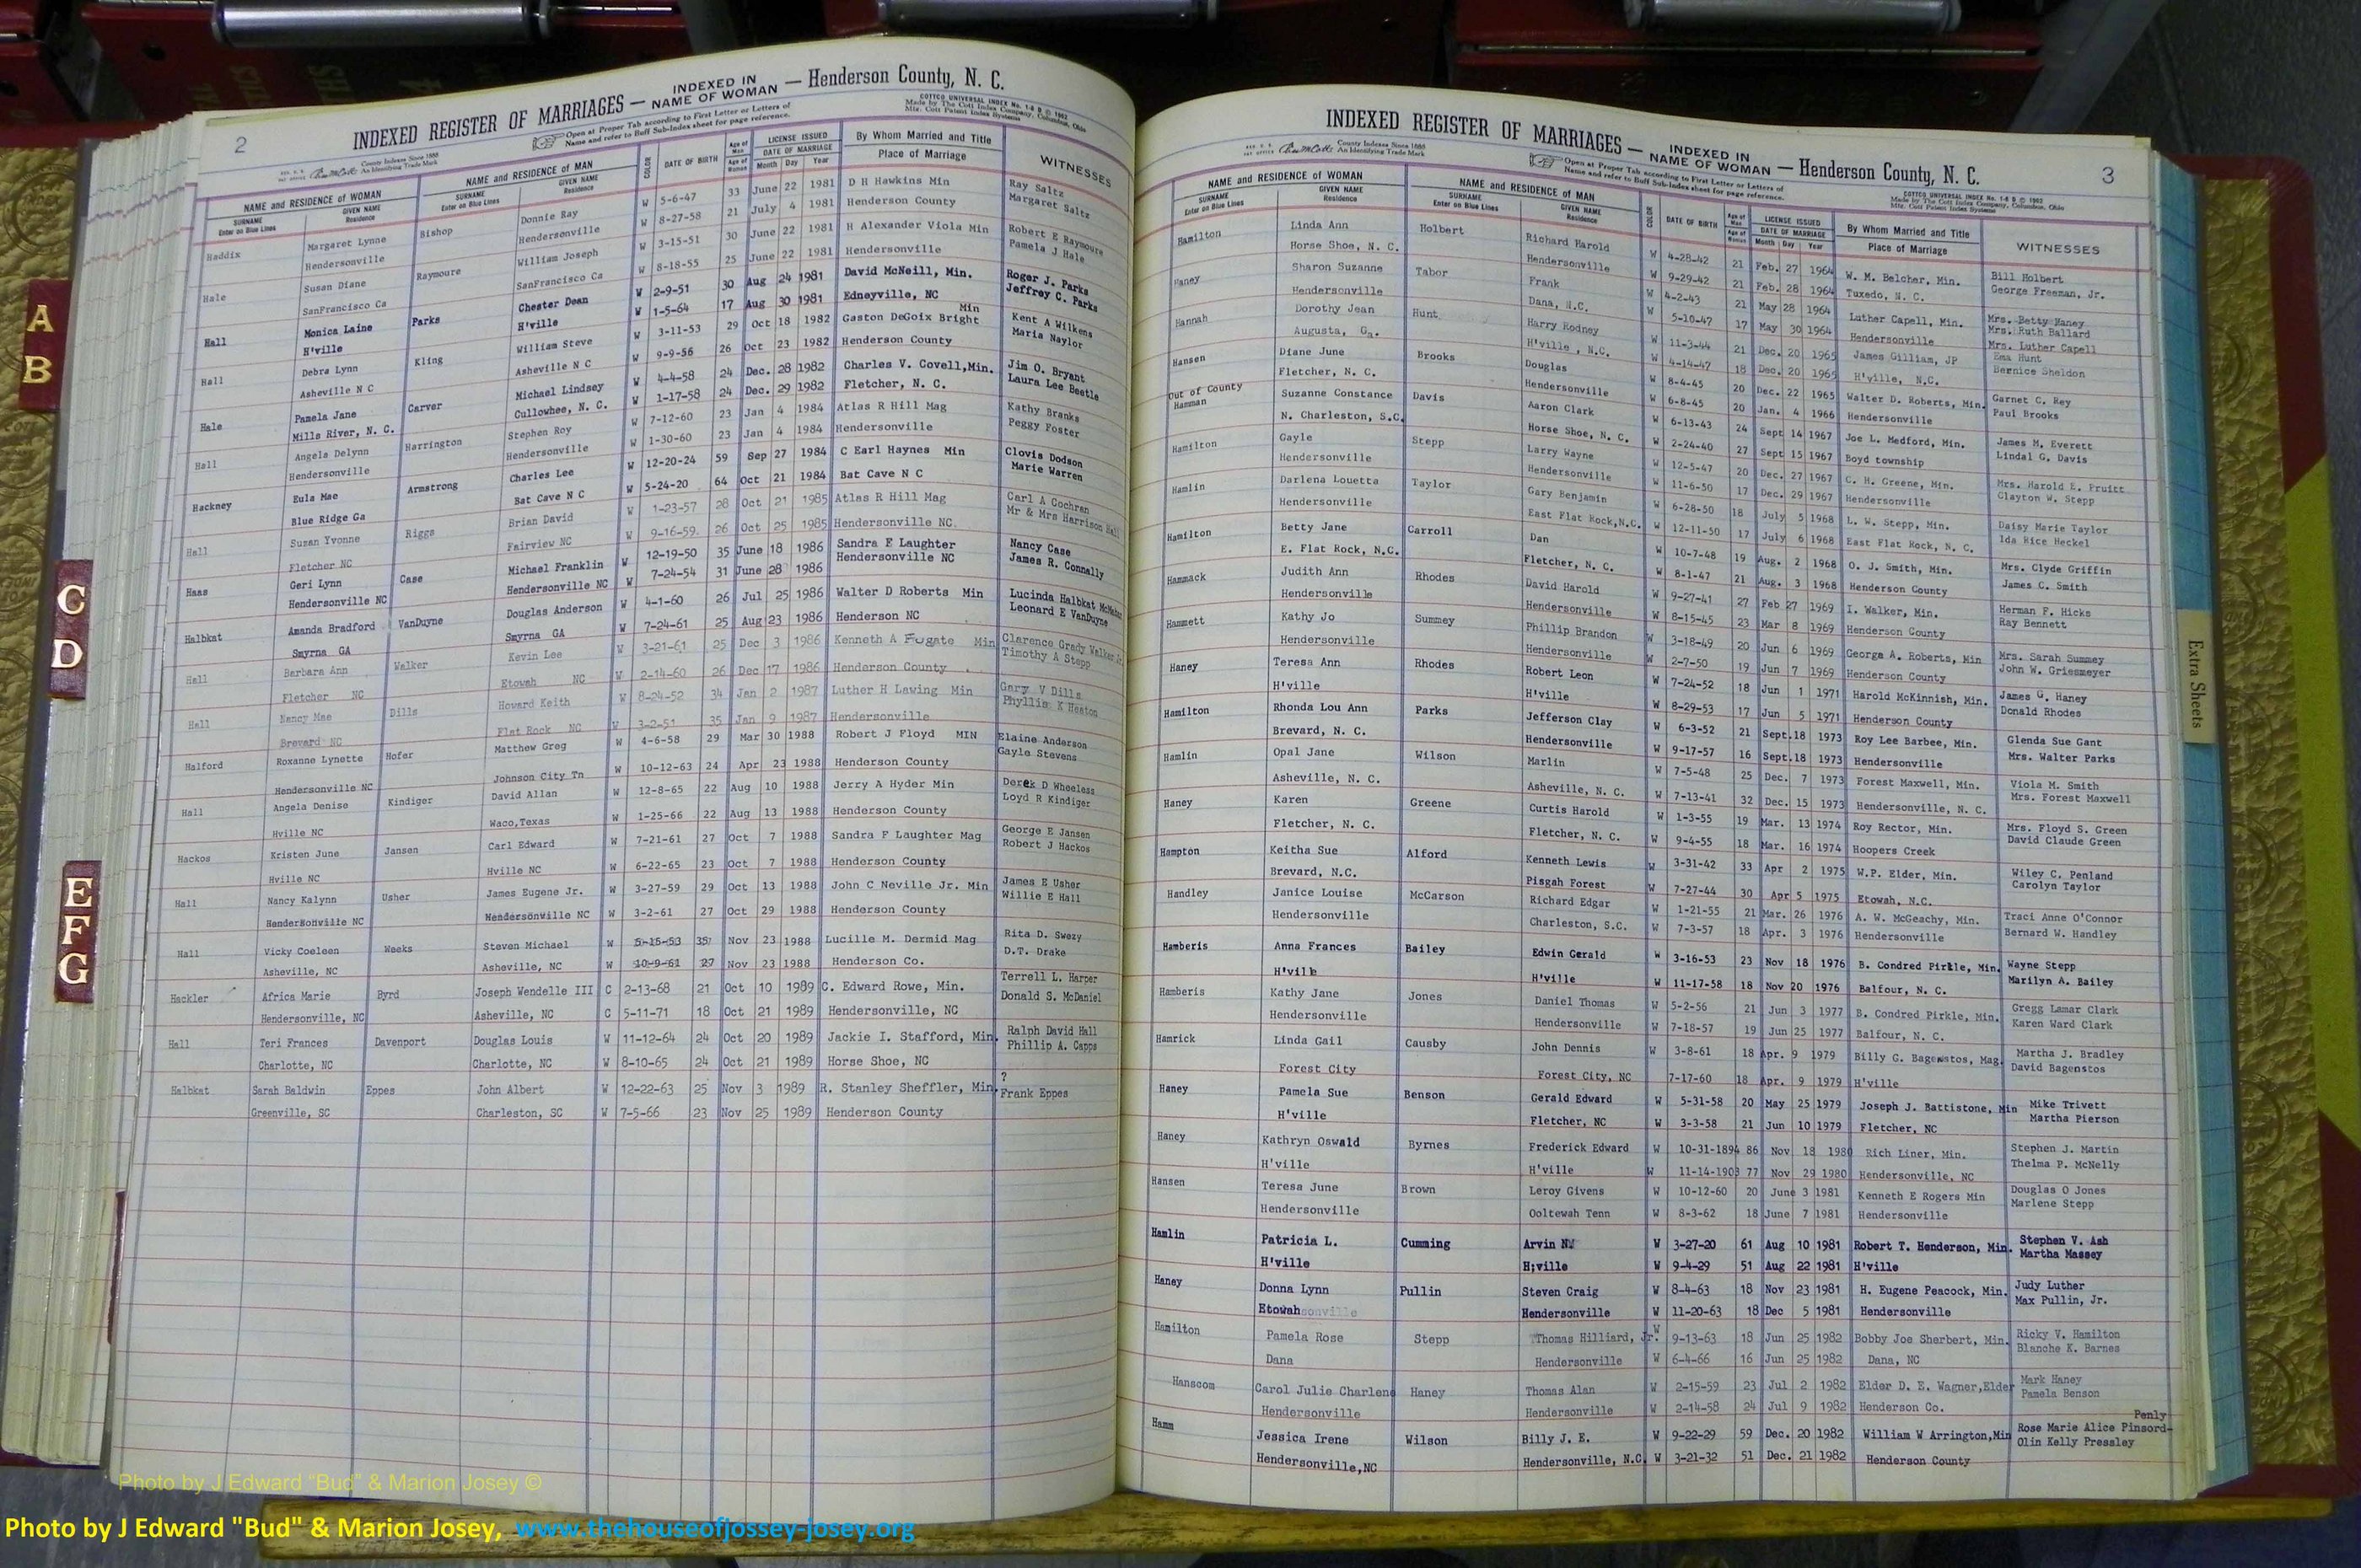 2
INDEXED REGISTER OF MARRIAGES — INDEXED IN NAME OF WOMAN — Henderson County, N. C.
County Indexes Since 1888
An Identifying Trade Mark
Open at Proper Tab according to First Letter or Letters of
Name and refer to Buff Sub-Index sheet for page reference.
COTTCO UNIVERSAL INDEX No. 1-8 B © 1962
Made by The Cott Index Company, Columbus, Ohio
Mfr. Cott Patent Index Systems
NAME and RESIDENCE of WOMAN NAME and RESIDENCE of MAN COLOR DATE OF BIRTH Age of Man LICENSE ISSUED By Whom Married and Title WITNESSES
SURNAME Enter on Blue Lines GIVEN NAME Residence SURNAME Enter on Blue Lines GIVEN NAME Residence Age of Woman DATE OF MARRIAGE Month Day Year Place of Marriage
Haddix Margaret Lynne Bishop Donnie Ray W 5-6-47 33 June 22 1981 D H Hawkins Min Ray Saltz
Hendersonville Hendersonville W 8-27-58 21 July 4 1981 Henderson County Margaret Saltz
Hale Susan Diane Raymoure William Joseph W 3-15-51 30 June 22 1981 H Alexander Viola Min Robert E Raymoure
SanFrancisco Ca SanFrancisco Ca W 8-18-55 25 June 22 1981 Hendersonville Pamela J Hale
Hall Monica Laine Parks Chester Dean W 2-9-51 30 Aug 24 1981 David McNeill, Min. Roger J. Parks
H'ville H'ville W 1-5-64 17 Aug 30 1981 Edneyville, NC Jeffrey C. Parks
Hall Debra Lynn Kling William Steve W 3-11-53 29 Oct 18 1982 Gaston DeGoix Bright Min Kent A Wilkens
Asheville N C Asheville N C W 9-9-56 26 Oct 23 1982 Henderson County Maria Naylor
Hale Pamela Jane Carver Michael Lindsey W 4-4-58 24 Dec. 28 1982 Charles V. Covell, Min. Jim O. Bryant
Mills River, N. C. Cullowhee, N. C. W 1-17-58 24 Dec. 29 1982 Fletcher, N. C. Laura Lee Beetle
Hall Angela Delynn Harrington Stephen Roy W 7-12-60 23 Jan 4 1984 Atlas R Hill Mag Kathy Branks
Hendersonville Hendersonville W 1-30-60 23 Jan 4 1984 Hendersonville Peggy Foster
Hackney Eula Mae Armstrong Charles Lee W 12-20-24 59 Sep 27 1984 C Earl Haynes Min Clovis Dodson
Blue Ridge Ga Bat Cave N C W 5-24-20 64 Oct 21 1984 Bat Cave N C Marie Warren
Hall Suzan Yvonne Riggs Brian David W 1-23-57 28 Oct 21 1985 Atlas R Hill Mag Carl A Cochran
Fletcher NC Fairview NC W 9-16-59. 26 Oct 25 1985 Hendersonville NC. Mr & Mrs Harrison Hall
Haas Geri Lynn Case Michael Franklin W 12-19-50 35 June 18 1986 Sandra F Laughter Nancy Case
Hendersonville NC Hendersonville NC W 7-24-54 31 June 28 1986 Hendersonville NC James R. Connally
Halbkat Amanda Bradford VanDuyne Douglas Anderson W 4-1-60 26 Jul 25 1986 Walter D Roberts Min Lucinda Halbkat
Smyrna GA Smyrna GA W 7-24-61 25 Aug 23 1986 Henderson NC Leonard E VanDuyne
Hall Barbara Ann Walker Kevin Lee W 3-21-61 25 Dec 3 1986 Kenneth A Fugate Min Clarence Grady Walker Jr.
Fletcher NC Etowah NC W 2-14-60 26 Dec 17 1986 Henderson County Timothy A Stepp
Hall Nancy Mae Dills Howard Keith W 8-24-52 34 Jan 2 1987 Luther H Lawing Min Gary V Dills
Brevard NC Flat Rock NC W 3-2-51 35 Jan 9 1987 Hendersonville Phyllis K Heaton
Halford Roxanne Lynette Hofer Matthew Greg W 4-6-58 29 Mar 30 1988 Robert J Floyd MIN Elaine Anderson
Hendersonville NC Johnson City Tn W 10-12-63 24 Apr 23 1988 Henderson County Gayle Stevens
Hall Angela Denise Kindiger David Allan W 12-8-65 22 Aug 10 1988 Jerry A Hyder Min Derek D Wheeless
Hville NC Waco,Texas W 1-25-66 22 Aug 13 1988 Henderson County Loyd R Kindiger
Hackos Kristen June Jansen Carl Edward W 7-21-61 27 Oct 7 1988 Sandra F Laughter Mag George E Jansen
Hville NC Hville NC W 6-22-65 23 Oct 7 1988 Henderson County Robert J Hackos
Hall Nancy Kalynn Usher James Eugene Jr. W 3-27-59 29 Oct 13 1988 John C Neville Jr. Min James E Usher
Hendersonville NC Hendersonville NC W 3-2-61 27 Oct 29 1988 Henderson County Willie E Hall
Hall Vicky Coeleen Weeks Steven Michael W 5-15-53 35 Nov 23 1988 Lucille M. Dermid Mag Rita D. Swezy
Asheville, NC Asheville, NC W 10-9-61 27 Nov 23 1988 Henderson Co. D.T. Drake
Hackler Africa Marie Byrd Joseph Wendelle III C 2-13-68 21 Oct 10 1989 C. Edward Rowe, Min. Terrell L. Harper
Hendersonville, NC Asheville, NC C 5-11-71 18 Oct 21 1989 Hendersonville, NC Donald S. McDaniel
Hall Teri Frances Davenport Douglas Louis W 11-12-64 24 Oct 20 1989 Jackie I. Stafford, Min. Ralph David Hall
Charlotte, NC Charlotte, NC W 8-10-65 24 Oct 21 1989 Horse Shoe, NC Phillip A. Capps
Halbkat Sarah Baldwin Eppes John Albert W 12-22-63 25 Nov 3 1989 R. Stanley Sheffler, Min. ?
Greenville, SC Charleston, SC W 7-5-66 23 Nov 25 1989 Henderson County Frank Eppes
3
INDEXED REGISTER OF MARRIAGES — INDEXED IN NAME OF WOMAN — Henderson County, N. C.
County Indexes Since 1888
An Identifying Trade Mark
Open at Proper Tab according to First Letter or Letters of
Name and refer to Buff Sub-Index sheet for page reference.
COTTCO UNIVERSAL INDEX No. 1-8 B © 1962
Made by The Cott Index Company, Columbus, Ohio
Mfr. Cott Patent Index Systems
NAME and RESIDENCE of WOMAN NAME and RESIDENCE of MAN COLOR DATE OF BIRTH Age of Man LICENSE ISSUED By Whom Married and Title WITNESSES
SURNAME Enter on Blue Lines GIVEN NAME Residence SURNAME Enter on Blue Lines GIVEN NAME Residence Age of Woman DATE OF MARRIAGE Month Day Year Place of Marriage
Hamilton Linda Ann Holbert Richard Harold W 4-28-42 21 Feb. 27 1964 W. M. Belcher, Min. Bill Holbert
Horse Shoe, N. C. Hendersonville W 9-29-42 21 Feb. 28 1964 Tuxedo, N. C. George Freeman, Jr.
Haney Sharon Suzanne Tabor Frank W 4-2-43 21 May 28 1964 Luther Capell, Min. Mrs. Betty Haney
Hendersonville Dana, N.C. W 5-10-47 17 May 30 1964 Hendersonville Mrs. Ruth Ballard
Mrs. Luther Capell
Hannah Dorothy Jean Hunt Harry Rodney W 11-3-44 21 Dec. 20 1965 James Gilliam, JP Ema Hunt
Augusta, Ga. H'ville, N.C. W 4-14-47 18 Dec. 20 1965 H'ville, N.C. Bernice Sheldon
Hansen Diane June Brooks Douglas W 8-4-45 20 Dec. 22 1965 Walter D. Roberts, Min. Garnet C. Rey
Fletcher, N. C. Hendersonville W 6-8-45 20 Jan. 4 1966 Hendersonville Paul Brooks
Out of County
Hamman Suzanne Constance Davis Aaron Clark W 6-13-43 24 Sept 14 1967 Joe L. Medford, Min. James M. Everett
N. Charleston, S.C. Horse Shoe, N. C. W 2-24-40 27 Sept 15 1967 Boyd township Lindal G. Davis
Hamilton Gayle Stepp Larry Wayne W 12-5-47 20 Dec. 27 1967 C. H. Greene, Min. Mrs. Harold E. Pruitt
Hendersonville Hendersonville W 11-6-50 17 Dec. 29 1967 Hendersonville Clayton W. Stepp
Hamlin Darlena Louetta Taylor Gary Benjamin W 6-28-50 18 July 5 1968 L. W. Stepp, Min. Daisy Marie Taylor
Hendersonville East Flat Rock,N.C. W 12-11-50 17 July 6 1968 East Flat Rock, N. C. Ida Rice Heckel
Hamilton Betty Jane Carroll Dan W 10-7-48 19 Aug. 2 1968 O. J. Smith, Min. Mrs. Clyde Griffin
E. Flat Rock, N.C. Fletcher, N. C. W 8-1-47 21 Aug. 3 1968 Henderson County James C. Smith
Hammack Judith Ann Rhodes David Harold W 9-27-41 27 Feb 27 1969 I. Walker, Min. Herman F. Hicks
Hendersonville Hendersonville W 8-15-45 23 Mar 8 1969 Henderson County Ray Bennett
Hammett Kathy Jo Summey Phillip Brandon W 3-18-49 20 Jun 6 1969 George A. Roberts, Min Mrs. Sarah Summey
Hendersonville Hendersonville W 2-7-50 19 Jun 7 1969 Henderson County John W. Griesmeyer
Haney Teresa Ann Rhodes Robert Leon W 7-24-52 18 Jun 1 1971 Harold McKinnish, Min. James G. Haney
H'ville H'ville W 8-29-53 17 Jun 5 1971 Henderson County Donald Rhodes
Hamilton Rhonda Lou Ann Parks Jefferson Clay W 6-3-52 21 Sept.18 1973 Roy Lee Barbee, Min. Glenda Sue Gant
Brevard, N. C. Hendersonville W 9-17-57 16 Sept.18 1973 Hendersonville Mrs. Walter Parks
Hamlin Opal Jane Wilson Marlin W 7-5-48 25 Dec. 7 1973 Forest Maxwell, Min. Viola M. Smith
Asheville, N. C. Asheville, N. C. W 7-13-41 32 Dec. 15 1973 Hendersonville, N. C. Mrs. Forest Maxwell
Haney Karen Greene Curtis Harold W 1-3-55 19 Mar. 13 1974 Roy Rector, Min. Mrs. Floyd S. Green
Fletcher, N. C. Fletcher, N. C. W 9-4-55 18 Mar. 16 1974 Hoopers Creek David Claude Green
Hampton Keitha Sue Alford Kenneth Lewis W 3-31-42 33 Apr 2 1975 W.P. Elder, Min. Wiley C. Penland
Brevard, N.C. Pisgah Forest W 7-27-44 30 Apr 5 1975 Etowah, N.C. Carolyn Taylor
Handley Janice Louise McCarson Richard Edgar W 1-21-55 21 Mar. 26 1976 A. W. McGeachy, Min. Traci Anne O'Connor
Hendersonville Charleston, S.C. W 7-3-57 18 Apr. 3 1976 Hendersonville Bernard W. Handley
Hamberis Anna Frances Bailey Edwin Gerald W 3-16-53 23 Nov 18 1976 B. Condred Pirkle, Min. Wayne Stepp
H'ville H'ville W 11-17-58 18 Nov 20 1976 Balfour, N. C. Marilyn A. Bailey
Hamberis Kathy Jane Jones Daniel Thomas W 5-2-56 21 Jun 3 1977 B. Condred Pirkle, Min. Gregg Lamar Clark
Hendersonville Hendersonville W 7-18-57 19 Jun 25 1977 Balfour, N. C. Karen Ward Clark
Hamrick Linda Gail Causby John Dennis W 3-8-61 18 Apr. 9 1979 Billy G. Bagenstos, Mag. Martha J. Bradley
Forest City Forest City, NC 7-17-60 18 Apr. 9 1979 H'ville David Bagenstos
Haney Pamela Sue Benson Gerald Edward W 5-31-58 20 May 25 1979 Joseph J. Battistone, Min Mike Trivett
H'ville Fletcher, NC W 3-3-58 21 Jun 10 1979 Fletcher, NC Martha Pierson
Haney Kathryn Oswald Byrnes Frederick Edward W 10-31-1894 86 Nov 18 1980 Rich Liner, Min. Stephen J. Martin
H'ville H'ville W 11-14-1903 77 Nov 29 1980 Hendersonville, NC Thelma P. McNelly
Hansen Teresa June Brown Leroy Givens W 10-12-60 20 June 3 1981 Kenneth E Rogers Min Douglas O Jones
Hendersonville Ooltewah Tenn W 8-3-62 18 June 7 1981 Hendersonville Marlene Stepp
Hamlin Patricia L. Cumming Arvin N. W 3-27-20 61 Aug 10 1981 Robert T. Henderson, Min. Stephen V. Ash
H'ville H;ville W 9-4-29 51 Aug 22 1981 H'ville Martha Massey
Haney Donna Lynn Pullin Steven Craig W 8-4-63 18 Nov 23 1981 H. Eugene Peacock, Min. Judy Luther
Etowah Hendersonville W 11-20-63 18 Dec 5 1981 Hendersonville Max Pullin, Jr.
Hamilton Pamela Rose Stepp Thomas Hilliard, Jr. W 9-13-63 18 Jun 25 1982 Bobby Joe Sherbert, Min. Ricky V. Hamilton
Dana Hendersonville W 6-4-66 16 Jun 25 1982 Dana, NC Blanche K. Barnes
Hanscom Carol Julie Charlene Haney Thomas Alan W 2-15-59 23 Jul 2 1982 Elder D. E. Wagner,Elder Mark Haney
Hendersonville Hendersonville W 2-14-58 24 Jul 9 1982 Henderson Co. Pamela Benson
Penly
Hamm Jessica Irene Wilson Billy J. E. W 9-22-29 59 Dec. 20 1982 William W Arrington,Min Rose Marie Alice Pinsord-
Hendersonville,NC Hendersonville, N.C. W 3-21-32 51 Dec. 21 1982 Henderson County Olin Kelly Pressley
A
B
C
D
E
F
G
Extra Sheets
Photo by J Edward "Bud" & Marion Josey ©
Photo by J Edward "Bud" & Marion Josey, www.thehouseofjossey-josey.org